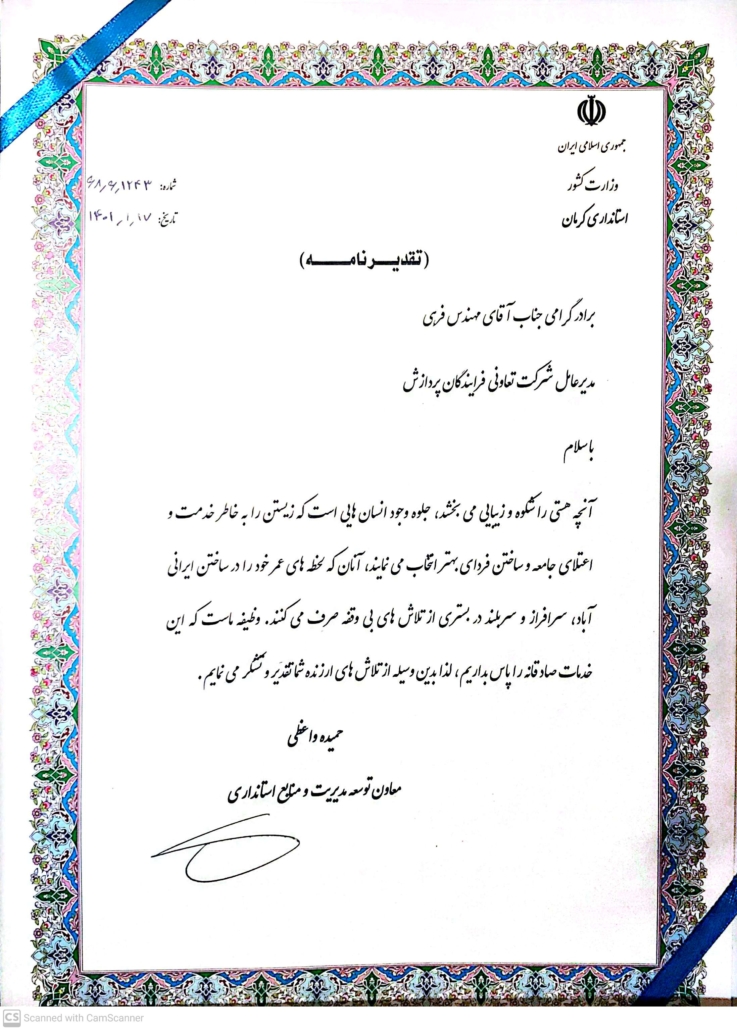 جمهوری اسلامی ایران
وزارت کشور
استانداری کرمان
شماره: ۶۸٫۶٫۱۲۴۳
تاریخ: ۱۴۰۱٫۱٫۱۷
(تقدیـرنامـه)
برادر گرامی جناب آقای مهندس فرهی
مدیرعامل شرکت تعاونی فرایندگان پردازش
باسلام
آنچه هستی را شکوه و زیبایی می بخشد، جلوه وجود انسان هایی است که زیستن را به خاطر خدمت و
اعتلای جامعه و ساختن فردای بهتر انتخاب می نمایند، آنان که لحظه های عمر خود را در ساختن ایرانی
آباد، سرافراز و سربلند در بستری از تلاش های بی وقفه صرف می کنند. وظیفه ماست که این
خدمات صادقانه را پاس بداریم، لذا بدین وسیله از تلاش های ارزنده شما تقدیر و تشکر می نمایم.
حمیده واعظی
معاون توسعه مدیریت و منابع استانداری
CS Scanned with CamScanner